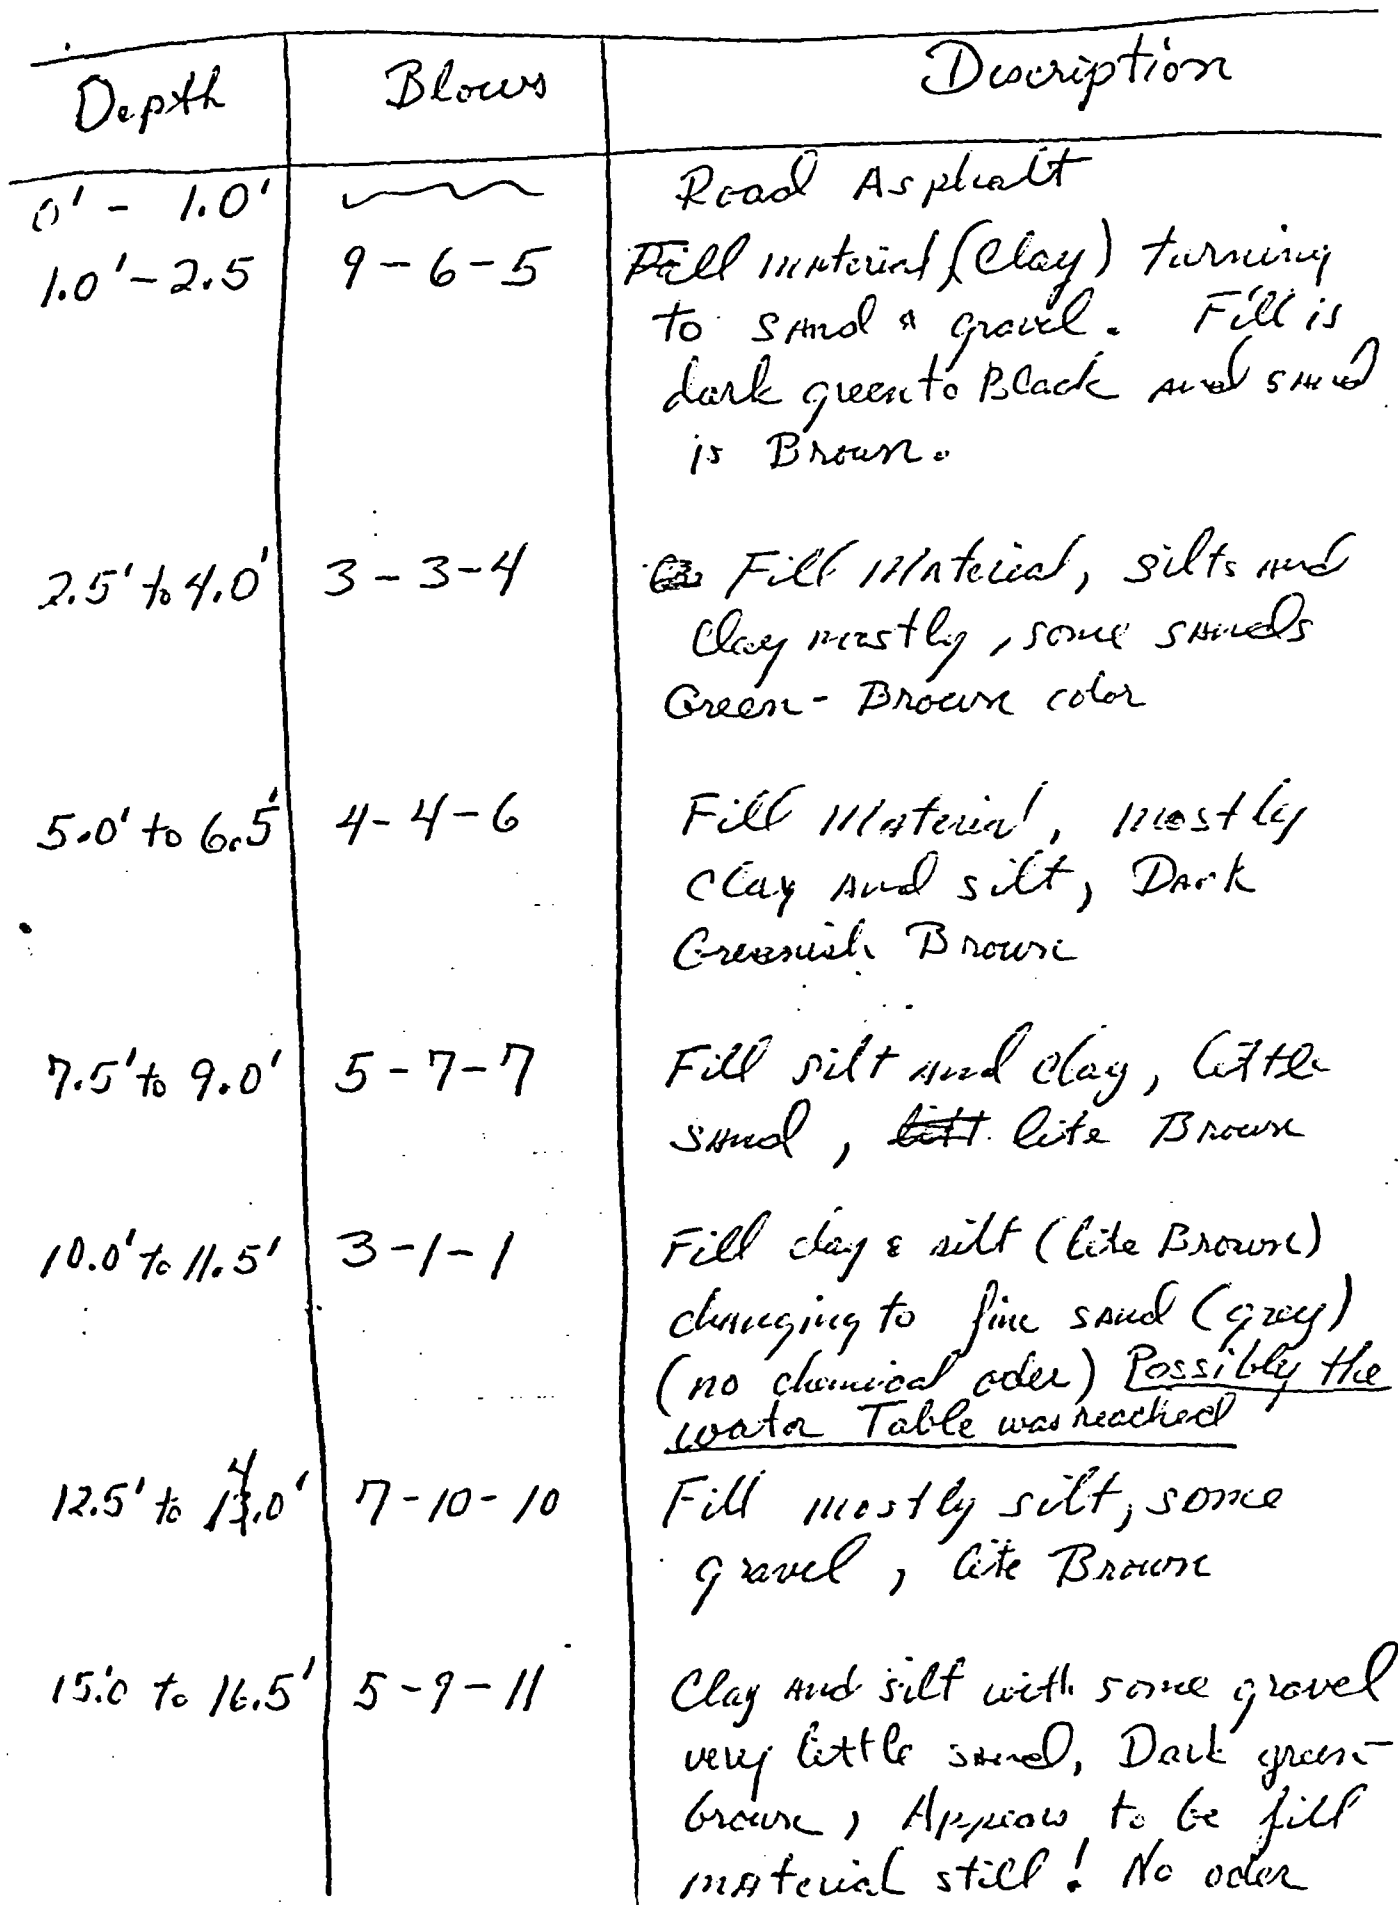 Depth Blows Description
0' - 1.0' Road Asphalt
1.0' - 2.5 9 - 6 - 5 Fill material (Clay) turning
to sand & gravel. Fill is
dark green to Black and sand
is Brown.
2.5' to 4.0' 3 - 3 - 4 Fill Material, silts and
Clay mostly, some sands
Green - Brown color
5.0' to 6.5' 4 - 4 - 6 Fill Material, mostly
Clay and silt, Dark
Greenish Brown
7.5' to 9.0' 5 - 7 - 7 Fill silt and clay, little
sand, litt lite Brown
10.0' to 11.5' 3 - 1 - 1 Fill clay & silt (lite Brown)
changing to fine sand (grey)
(no chemical oder) Possibly the
water Table was reached
12.5' to 14.0' 7 - 10 - 10 Fill mostly silt, some
gravel, lite Brown
15.'0 to 16.5' 5 - 9 - 11 Clay and silt with some gravel
very little sand, Dark green-
brown, Appears to be fill
material still! No oder